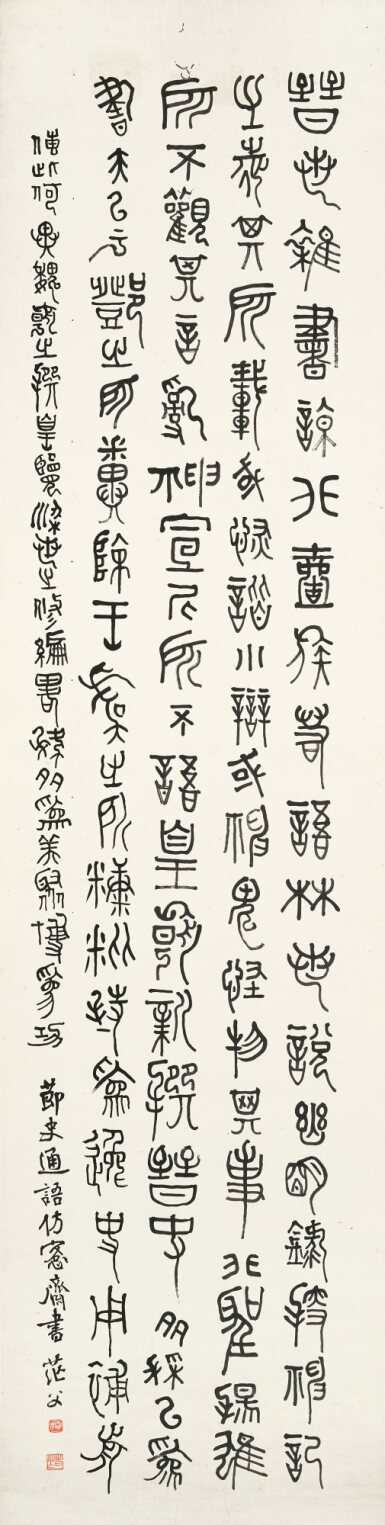 晉世雜書諒非壹族若語林世說幽明錄搜神記
之徒其所載或恢諧小辯或神鬼怪物其事非聖揚雄
所不觀其言亂神宣尼所不語皇朝新撰晉史多採以為
書夫以干鄧之所糞除王虞之所糠粃持為逸史用補前
傳此何異魏朝之撰皇覽梁世之修編略務多為美聚博為功
節史通語仿愙齋書 茫父